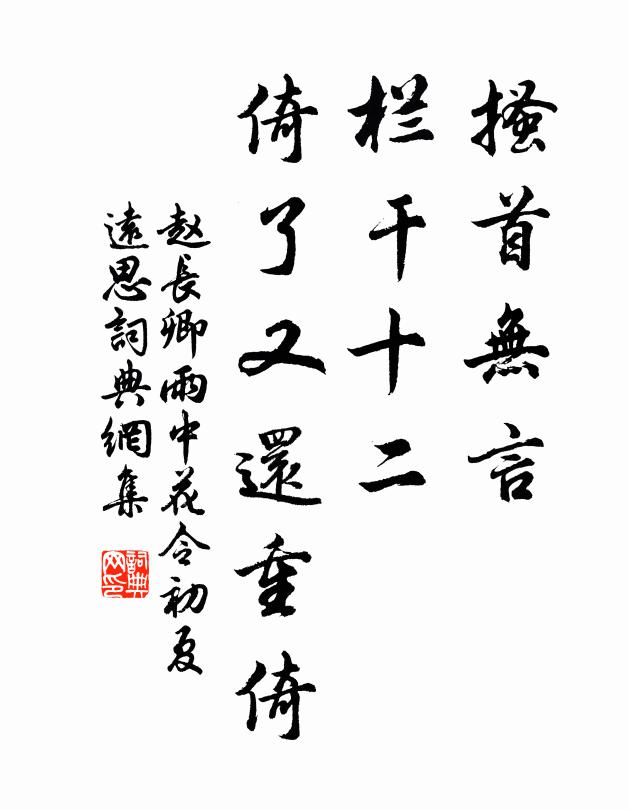 搔首無言
栏干十二
倚了又還重倚
赵長卿雨中花令初夏
遠思詞典網集
詞典网印